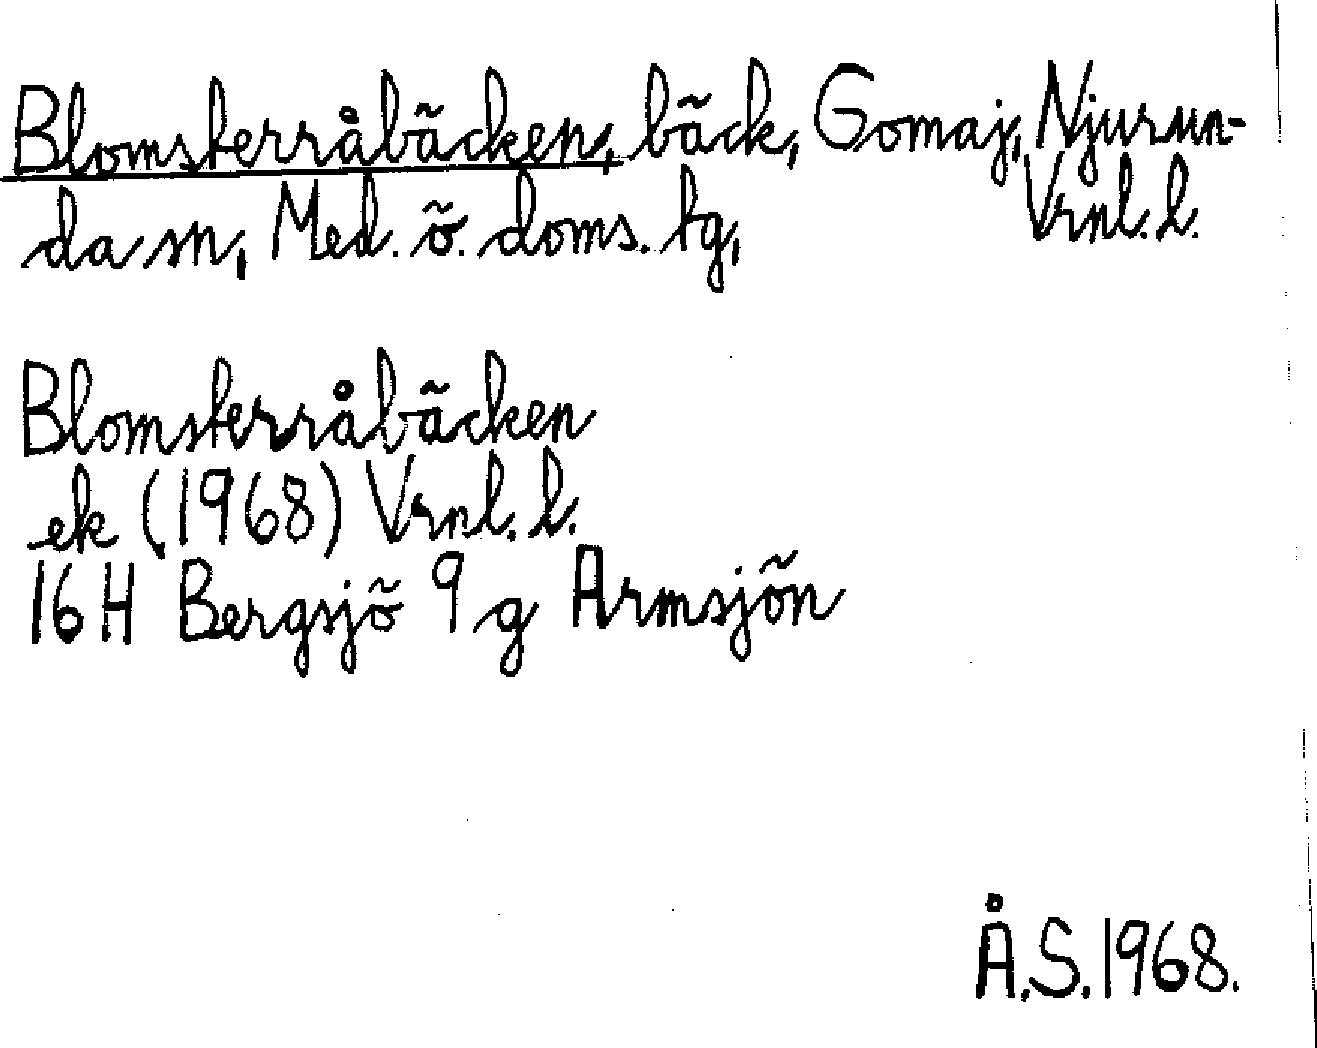 Blomsterråbäcken, bäck, Gomaj, Njurun-
da sn, Med. ö. doms. tg, Vrnl. l.
Blomsterråbäcken
ek (1968) Vrnl. l.
16 H Bergsjö 9 g Armsjön
Å.S. 1968.